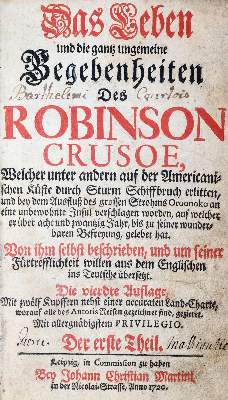 Das Leben
und die gantz ungemeine
Begebenheiten
Des
Barthelemi Courtois
ROBINSON
CRUSOE,
Welcher unter andern auf der Americani-
schen Küste durch Sturm Schiffbruch erlitten,
und bey dem Ausfluß des grossen Strohms Oroonoko an
eine unbewohnte Insul verschlagen worden, auf welcher
er über acht und zwantzig Jahr, bis zu seiner wunder-
baren Befreyung, gelebet hat.
Von ihm selbst beschrieben, und um seiner
Fürtrefflichkeit willen aus dem Englischen
ins Teutsche übersetzt.
Die vierdte Auflage,
Mit zwölf Kupffern nebst einer accuraten Land-Charte,
worauf alle des Autoris Reisen gezeichnet sind, gezieret.
Mit allergnädigstem PRIVILEGIO.
Der erste Theil.
Leipzig, in Commission zu haben
Bey Johann Christian Martini,
in der Nicolai-Strasse, Anno 1720.